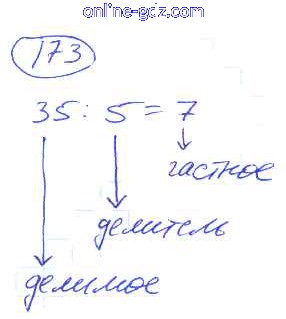 online-gdz.com
173
35 : 5 = 7
частное
делитель
делимое